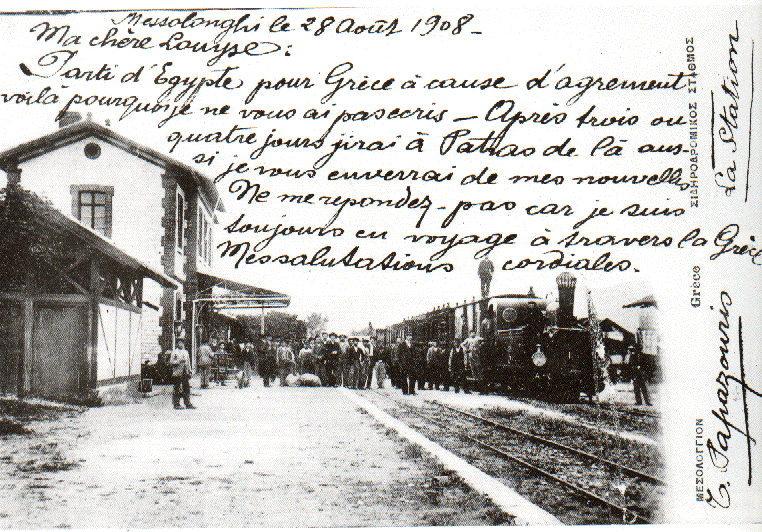 Messolonghi le 28 Août 1908_
Ma chère Louyse :
Parti d'Egypte pour Grèce à cause d'agrement
voilà pourquoi je ne vous ai pas ecris _ Après trois ou
quatre jours jirai à Patras de là aus-
si je vous enverrai de mes nouvelles
Ne me repondez - pas car je suis
toujours en voyage à travers la Grèce
Messalutations cordiales.
ΜΕΣΟΛΟΓΓΙΟΝ Grèce ΣΙΔΗΡΟΔΡΟΜΙΚΟΣ ΣΤΑΘΜΟΣ
La Station
Papazouris